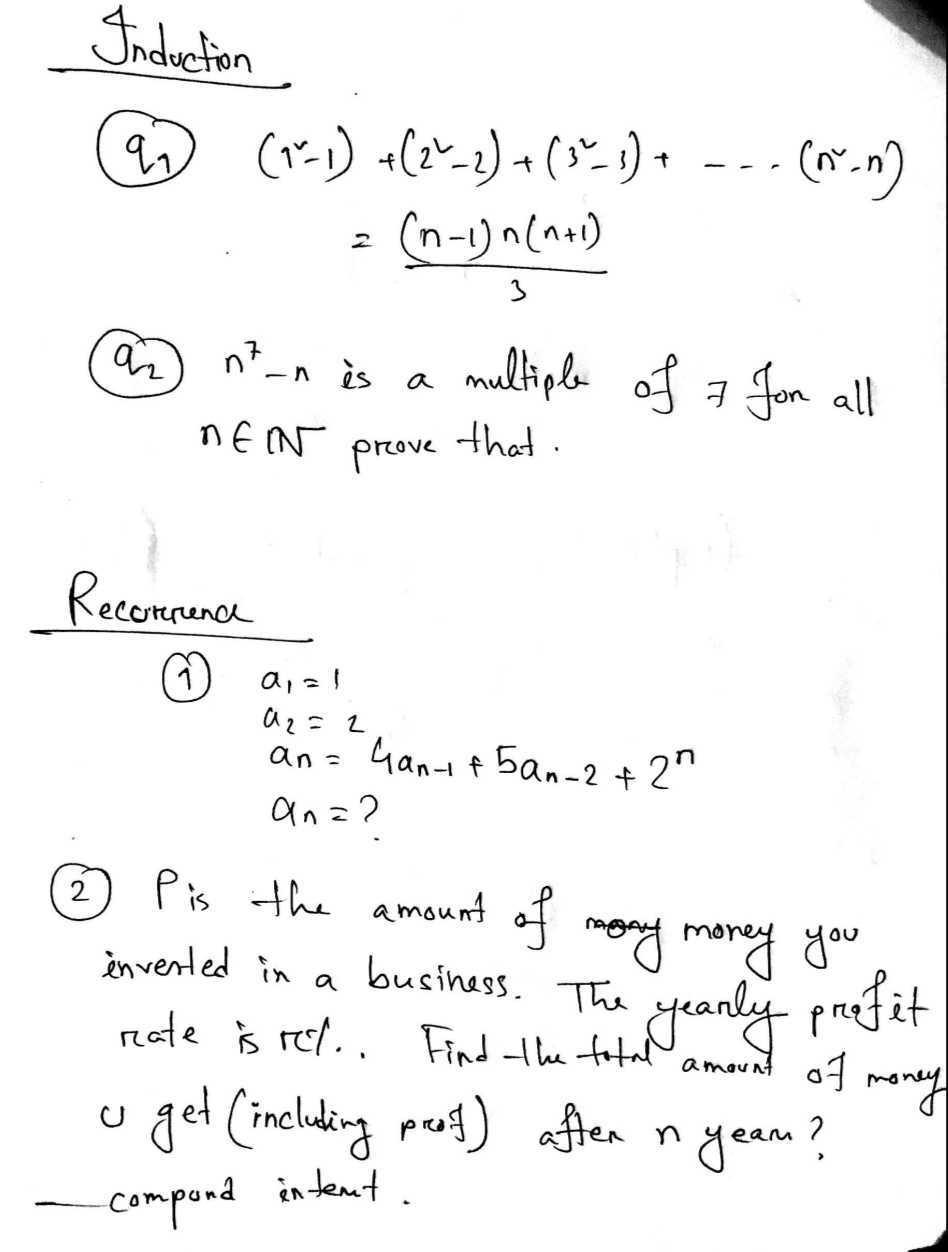 Induction
q1 (1²-1) + (2²-2) + (3²-3) + ---- (n²-n)
= (n-1)n(n+1)
3
q2 n⁷-n is a multiple of 7 for all
n∈ℕ prove that.
Recurrence
1 a₁=1
a₂=2
aₙ = 4aₙ₋₁ + 5aₙ₋₂ + 2ⁿ
aₙ=?
2 P is the amount of money you
invested in a business. The yearly profit
rate is r%. Find the total amount of money
u get (including prof) after n year?
— compund interut.